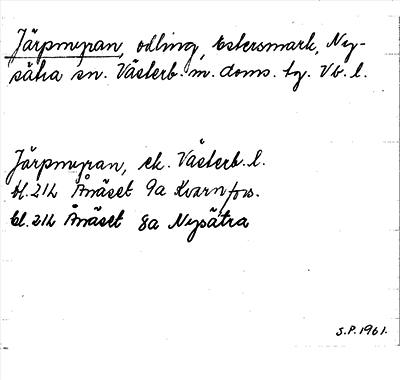 Järpmyran, odling, Estersmark, Ny-
sätra sn. Västerb. m. doms. tg. Vb. l.
Järpmyran, ek. Västerb. l.
bl. 21L Ånäset 9a Kvarnfors.
bl. 21L Ånäset 8a Nysätra
S.P. 1961.